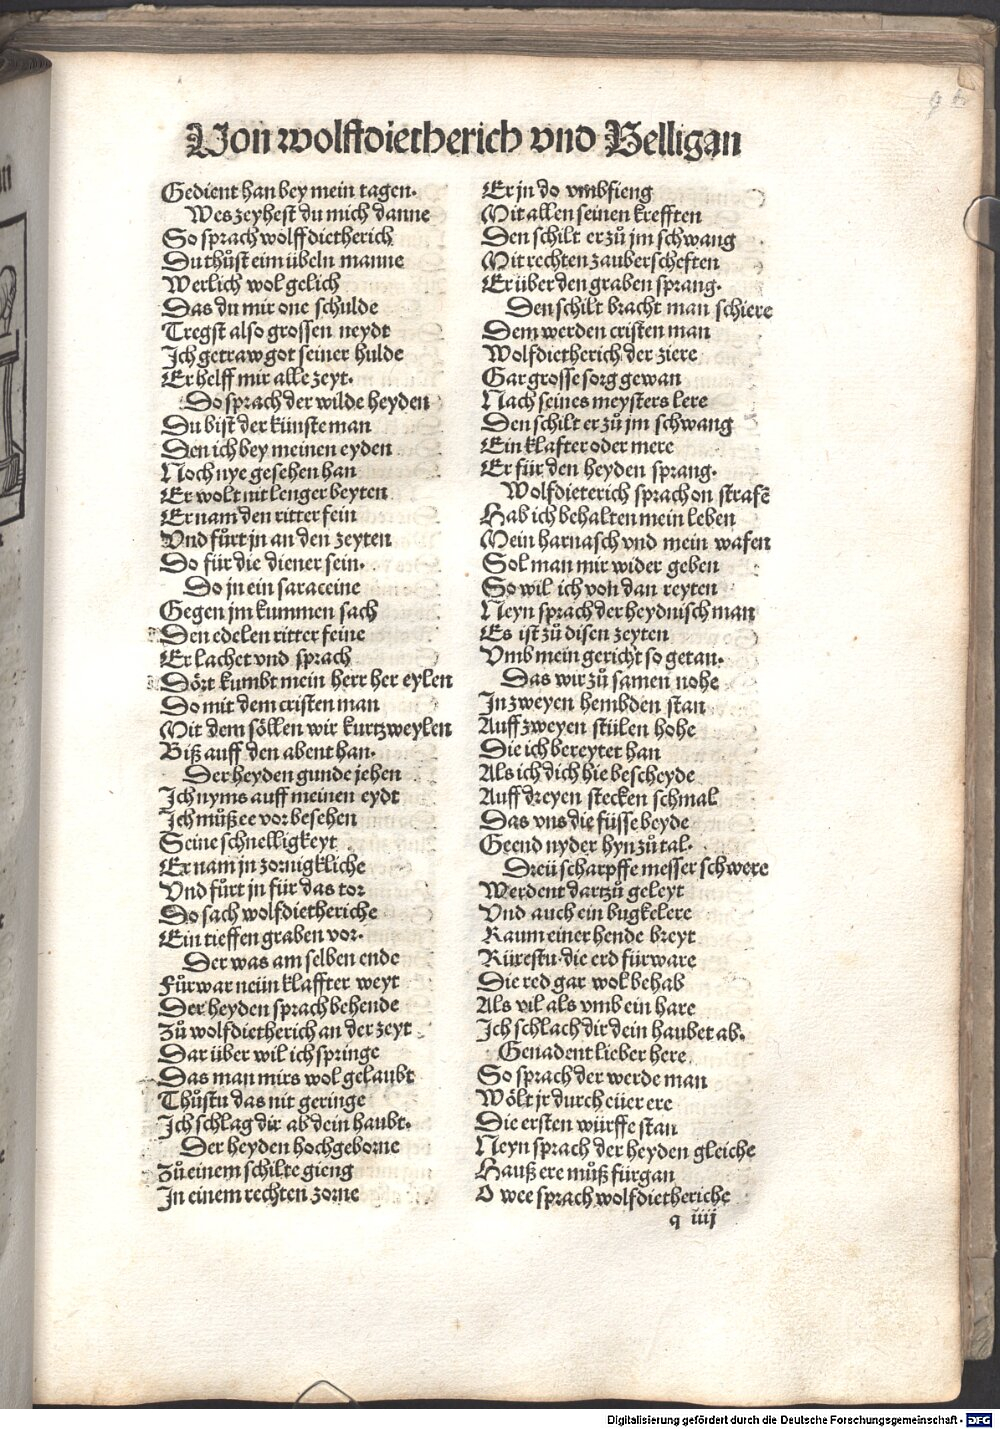 96
Von wolffdietherich vnd Belligan
Gedient han bey mein tagen.
Wes zeyhest du mich danne
So sprach wolff dietherich
Du thůst eim übeln manne
Werlich wol gelich
Das du mir one schulde
Tregst also grossen neydt
Ich getraw got seiner hulde
Er helff mir alle zeyt.
Do sprach der wilde heyden
Du bist der künste man
Den ich bey meinen eyden
Noch nye gesehen han
Er wolt nit lenger beyten
Er nam den ritter fein
Vnd fürt jn an den zeyten
Do für die diener sein.
Do jn ein saraceine
Gegen jm kummen sach
Den edelen ritter feine
Er lachet vnd sprach
Dört kumbt mein herr her eylen
Do mit dem cristen man
Mit dem söllen wir kurtzweylen
Biß auff den abent han.
Der heyden gunde jehen
Ich nyms auff meinen eydt
Ich můß ee vor besehen
Seine schnelligkeyt
Er nam jn zornigkliche
Vnd fürt jn für das tor
Do sach wolfdietheriche
Ein tieffen graben vor.
Der was am selben ende
Fürwar neün klaffter weyt
Der heyden sprach behende
Zů wolfdietherich an der zeyt
Dar über wil ich springe
Das man mirs wol gelaubt
Thůstu das nit geringe
Ich schlag dir ab dein haubt.
Der heyden hochgeborne
Zů einem schilte gieng
In einem rechten zorne
Er jn do vmbfieng
Mit allen seinen krefften
Den schilt er zů jm schwang
Mit rechten zauberscheften
Er über den graben sprang.
Den schilt bracht man schiere
Dem werden cristen man
Wolfdietherich der ziere
Gar grosse sorg gewan
Nach seines meysters lere
Den schilt er zů jm schwang
Ein klafter oder mere
Er für den heyden sprang.
Wolfdieterich sprach on strafē
Hab ich behalten mein leben
Mein harnasch vnd mein wafen
Sol man mir wider geben
So wil ich von dan reyten
Neyn sprach der heydnisch man
Es ist zů disen zeyten
Vmb mein gericht so getan.
Das wir zů samen nohe
In zweyen hembden stan
Auff zweyen stülen hohe
Die ich bereytet han
Als ich dich hie bescheyde
Auff dreyen stecken schmal
Das vns die füsse beyde
Geend nyder hyn zů tal.
Dreü scharpffe messer schwere
Werdent dartzů geleyt
Vnd auch ein bugkelere
Kaum einer hende breyt
Rürestu die erd fürware
Die red gar wol behab
Als vil als vmb ein hare
Ich schlach dir dein haubet ab.
Genadent lieber here
So sprach der werde man
Wölt jr durch eüer ere
Die ersten würffe stan
Neyn sprach der heyden gleiche
Hauß ere můß fürgan
O wee sprach wolfdietheriche
q iiij
Digitalisierung gefördert durch die Deutsche Forschungsgemeinschaft - DFG